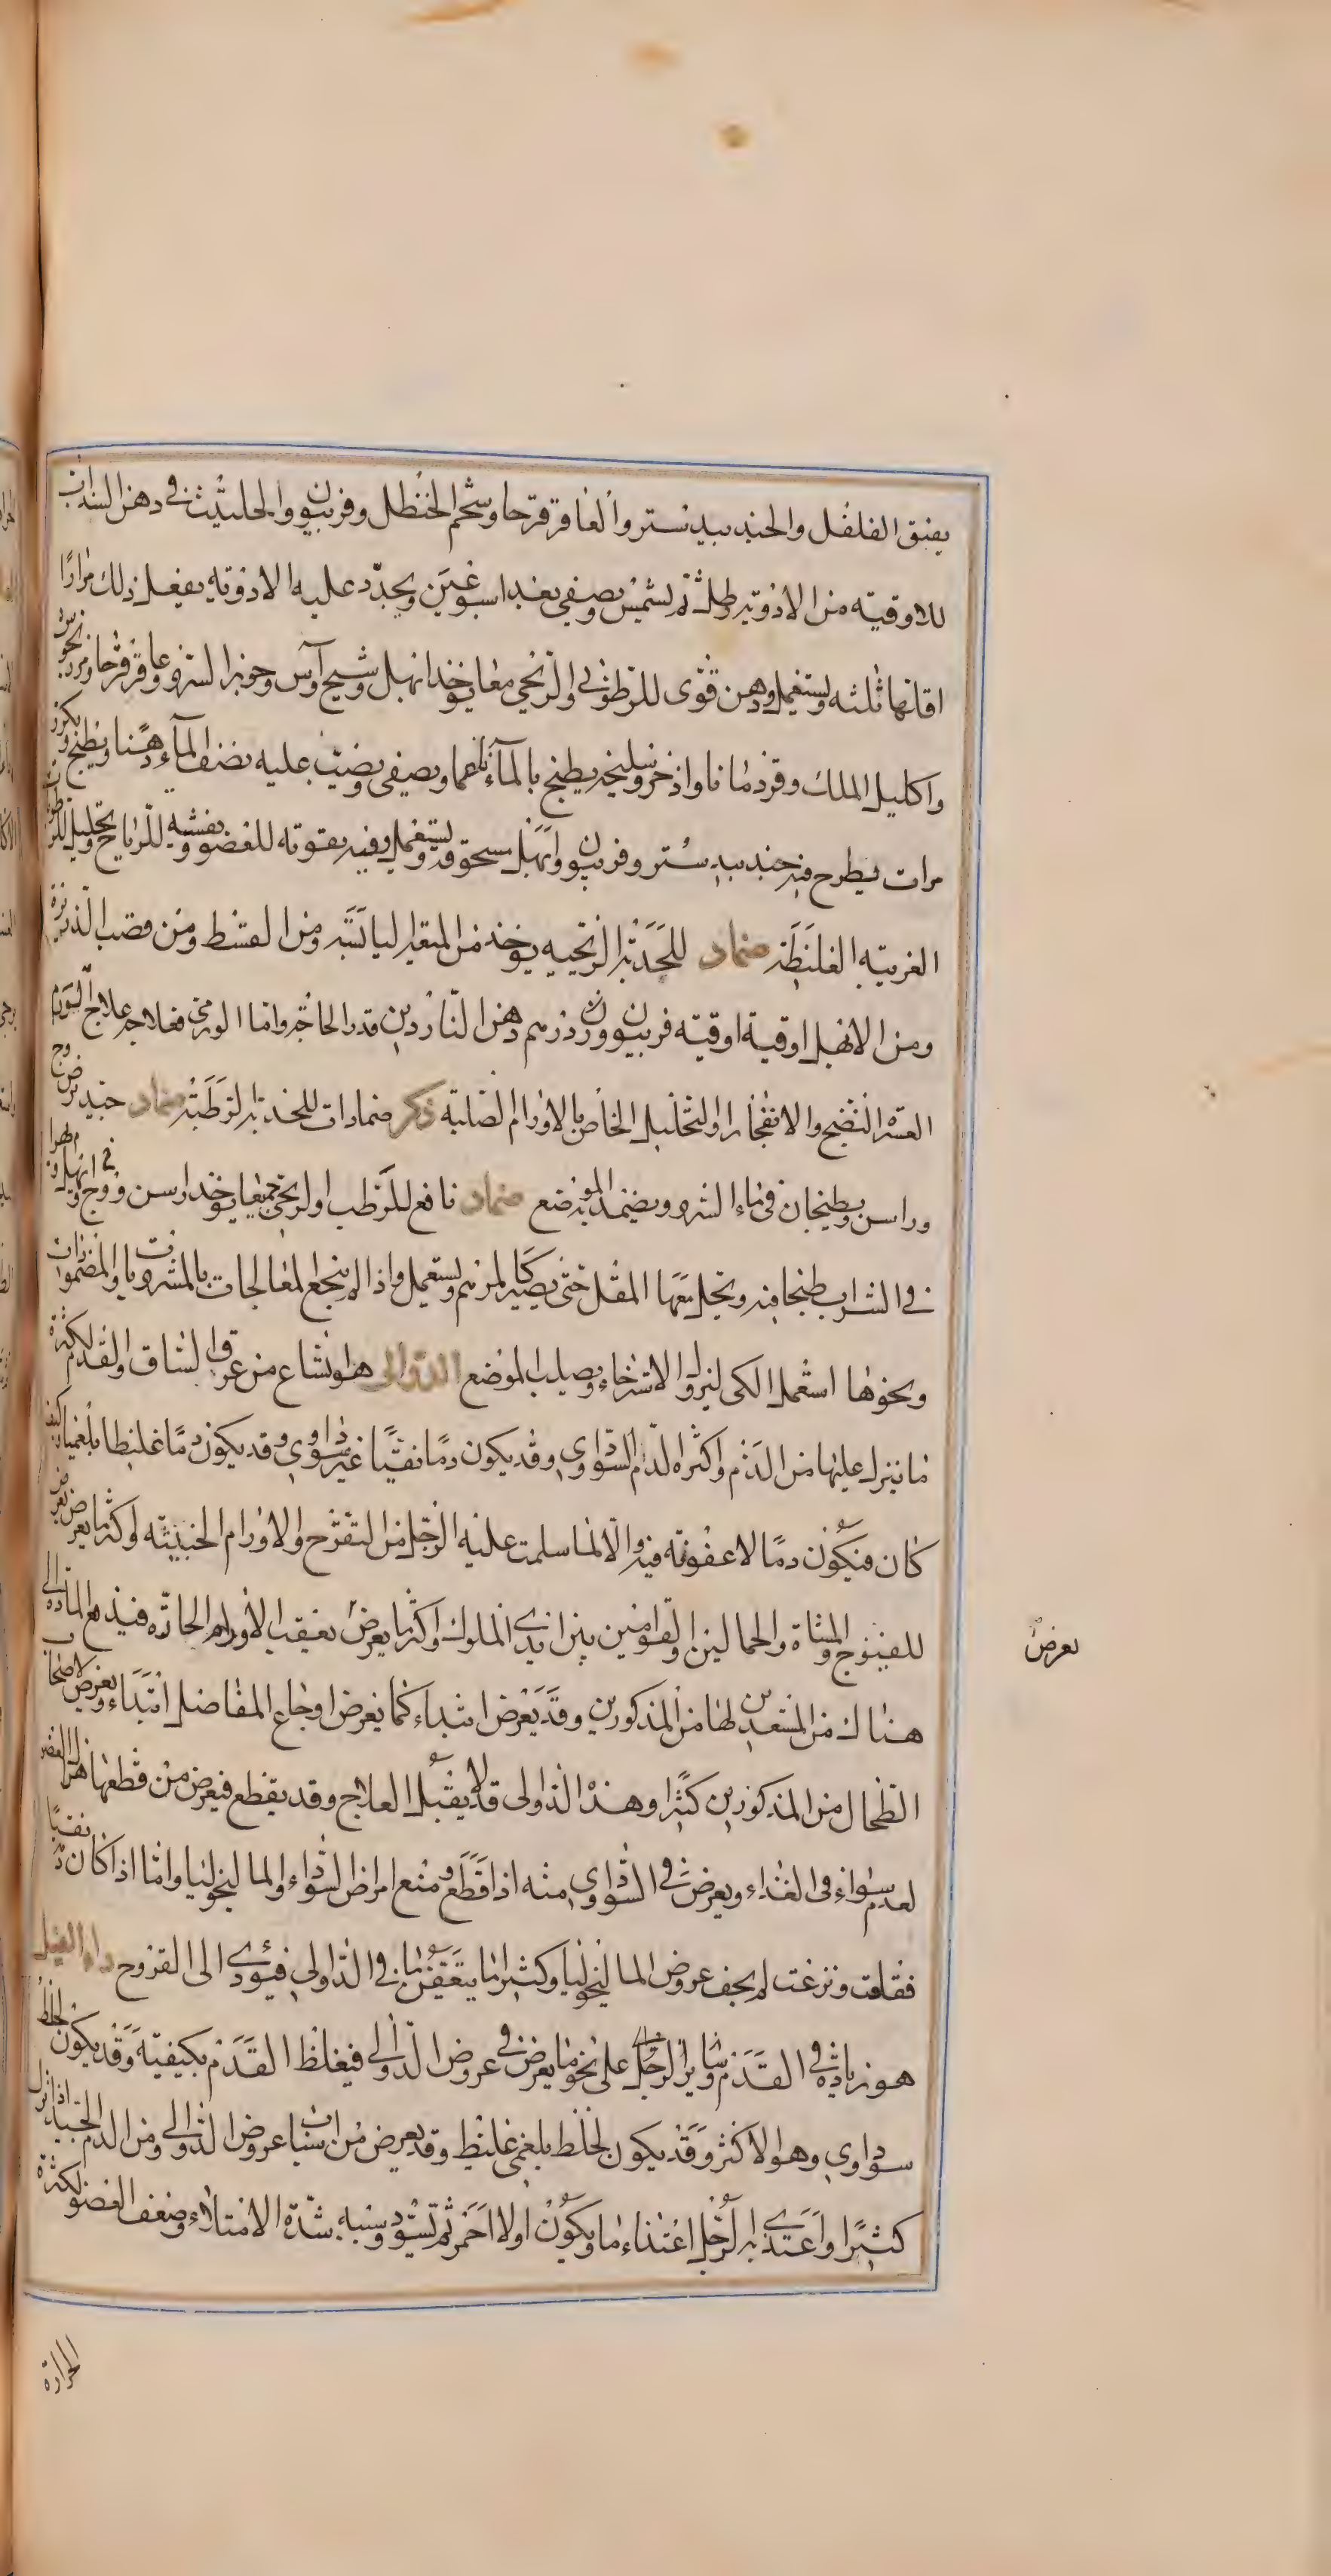 يفتق الفلفل والجندبيدستر والعاقرقرحا وشحم الحنظل وفربيون والحلتيت في دهن السداب
للاوقية من الادوية رطل ثم يشمس ويصفى بعد اسبوعين ويجدد عليه الادوية يفعل ذلك مرارا
اقلها ثلثه ويستعمل ودهن قوى للرطوبى والريحي معا يوخذ ابهل وشيح آس وجوز السرو وعاقرقرحا ومرزنجوش
واكليل الملك وقردمانا واذخر وسليخه يطبخ بالماء نعما ويصفى ويصب عليه نصف الماء دهنا ويطبخ ويكرر
مرات يطرح فيه جندبيدستر وفربيون وابهل مسحوقه ويستعمل وفيه تقوية للعضو وتفشيه للرياح وتحليل للرطوبات
الغريبة الغليظة ضماد للحدبة الريحية يوخذ من الميعة اليابسة ومن القسط ومن قصب الذريرة
ومن الابهل اوقية اوقية فربيون وزن درهم دهن الناردين قدر الحاجة واما الورمى فعلاجه علاج الورم
العسر النضج والانفجار او التحليل الخاص بالاورام الصلبة ذكر ضمادات للحدبة الرطبة ضماد جيد يرض وج
وراسن ويطبخان في ماء السرو ويضمد به الموضع ضماد نافع للرطب والريحي جميعا يوخذ راسن ووج وابهل ويهرا في
في الشراب طبخا فيه ويحل معها المقل حتى يصير كالمرهم ويستعمل واذا لم ينجع المعالجات بالمشروبات والمضمدات
ونحوها استعمل الكى ليزول الاسترخاء ويصلب الموضع الدوالى هو اتساع من عروق الساق والقدم لكثرة
ما ينزل عليها من الدم واكثره الدم السوداوي وقد يكون دما نقيا غير سوداوي وقد يكون دما غليظا بلغميا كيف
كان فيكون دما لا عفونة فيه والا لما سلمت عليه الرجل من التقرح والاورام الخبيثه واكثر ما يعرض يعرض
للفيوج والمشاة والحمالين والقوامين بين ايدي الملوك واكثر ما يعرض يعقب الاورام الحادة فيندفع المادة الى
يعرض
هناك من المستعدين لها من المذكورين وقد يعرض ابتداء كما يعرض اوجاع المفاصل ابتداء ويعرض لاصحاب
الطحال من المذكورين كثيرا وهذه الدوالى قد لا يقبل العلاج وقد يقطع فيعرض من قطعها هزال العضو
لعدم سواء في الغذاء ويعرض في السوداوي منه اذا قطع ومنع امراض السوداء والماليخوليا واما اذا كان نقيا
فقلعت ونزعت لم يخف عروض الماليخوليا وكثيرا ما يتعفن ما في الدوالي فيؤدي الى القروح داء الفيل
هو زيادة في القدم وساير الرجل على نحو ما يعرض في عروض الدوالى فيغلظ القدم بكيفيته وقد يكون لخلط
سوداوي وهو الاكثر وقد يكون لخلط بلغمي غليظ وقد يعرض من اسباب عروض الدوالى ومن الدم الجيد اذا نزل
كثيرا واغتذي به الرجل اغتذاء ما ويكون اولا احمر ثم تسود وسببه شدة الامتلاء وضعف العضو لكثرة
الحرارة